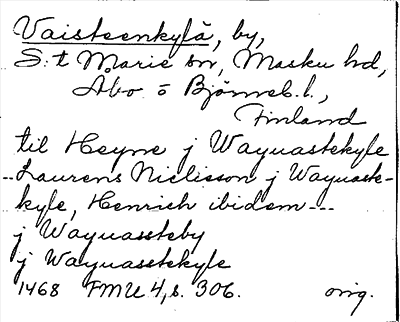 Vaisteenkylä, by,
S:t Marie sn, Masku hd,
Åbo o Björneb. l.,
Finland
til Heyne j Wayuastekyle
-- Laurens Nielisson j Wayuaste-
kyle, Henrich ibidem ---
j Wayuassteby
j Wayuasstekyle
1468 FMU 4, s. 306. orig.